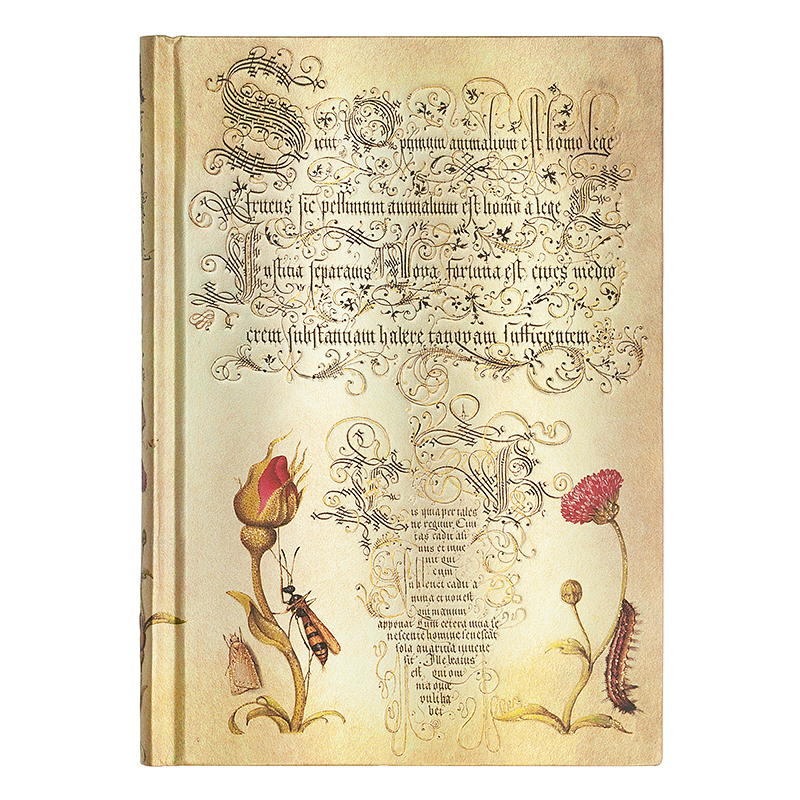 Sicut Optimum animalium est homo lege
fruens sic pessimum animalium est homo a lege E
Iustitia separatus Nova fortuna est cives medio
crem substantiam habere tanquam sufficientem
is quia per tales
ne regitur, Civi
tas cadit asi
nus et inue
nit qui
eum
Sublevet cadit a
nima et non est
qui manum
apponat Cum cetera vitia se
nescente homine senescāt
sola avaritia iuvene
scit. Ille beatus
est qui om
nia quae
vult ha
bet